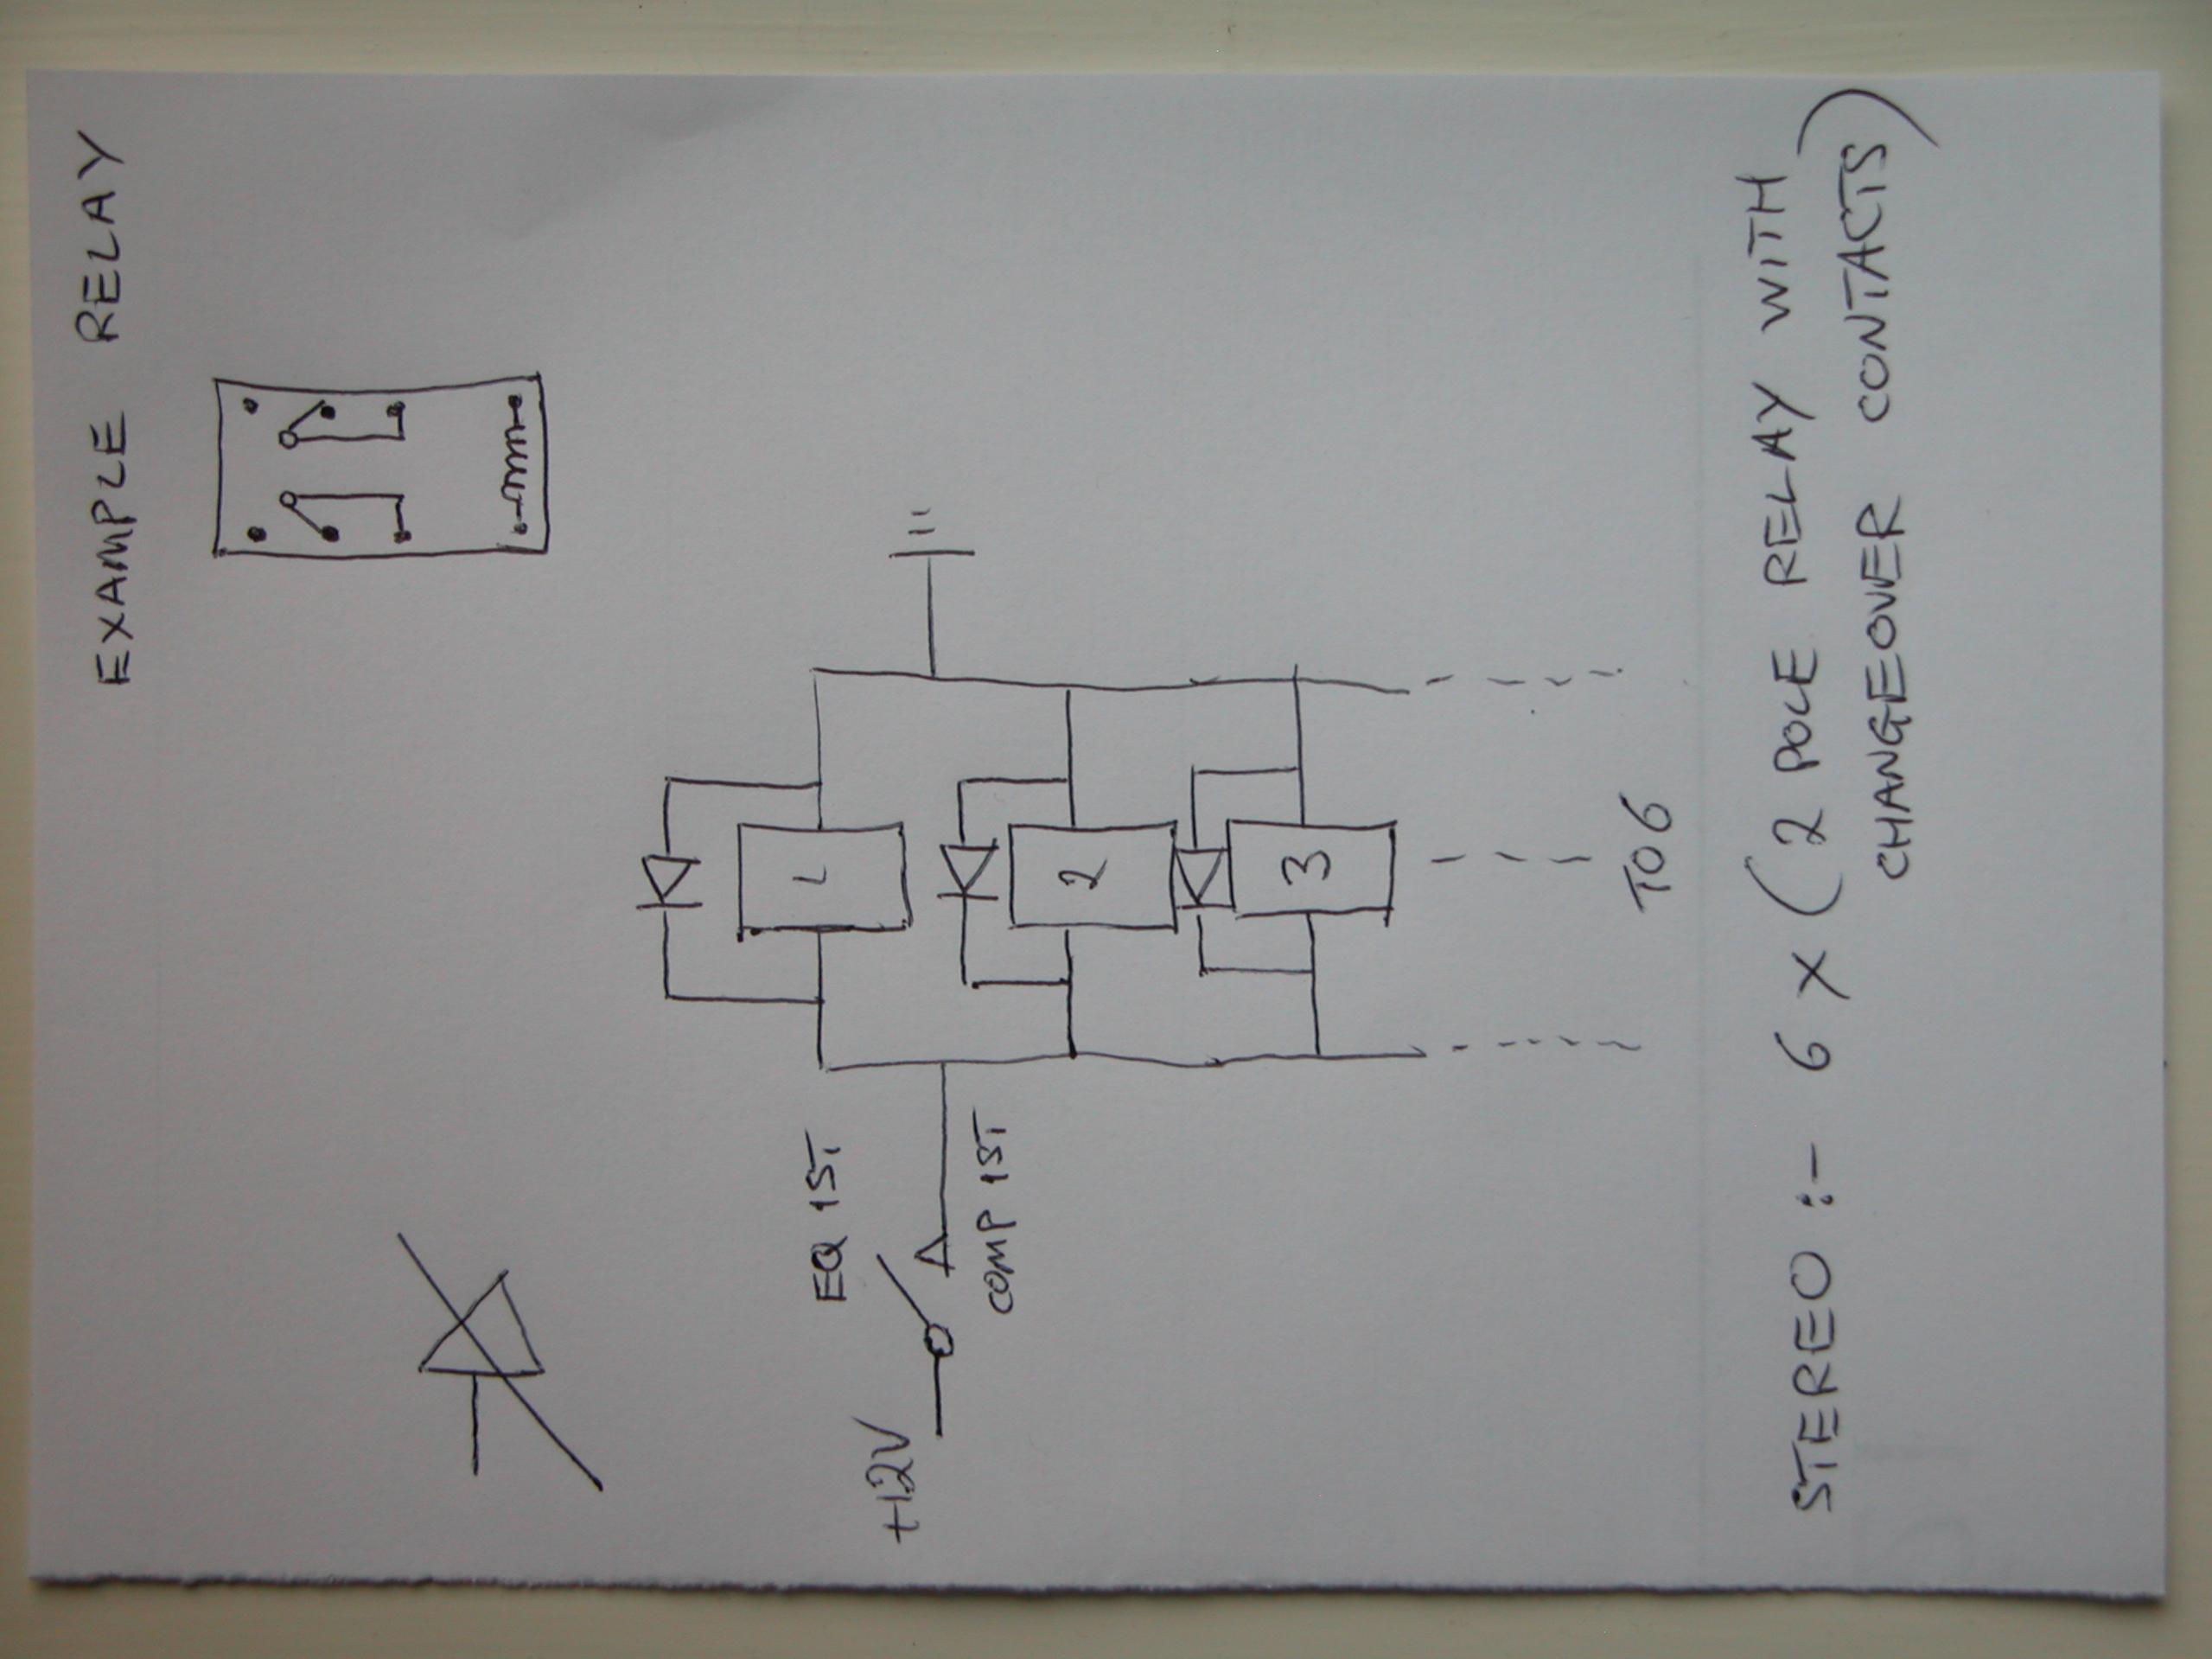 EXAMPLE RELAY
EQ 1ST
+12V
COMP 1ST
1
2
3
TO 6
STEREO :- 6 X (2 POLE RELAY WITH
CHANGEOVER CONTACTS)